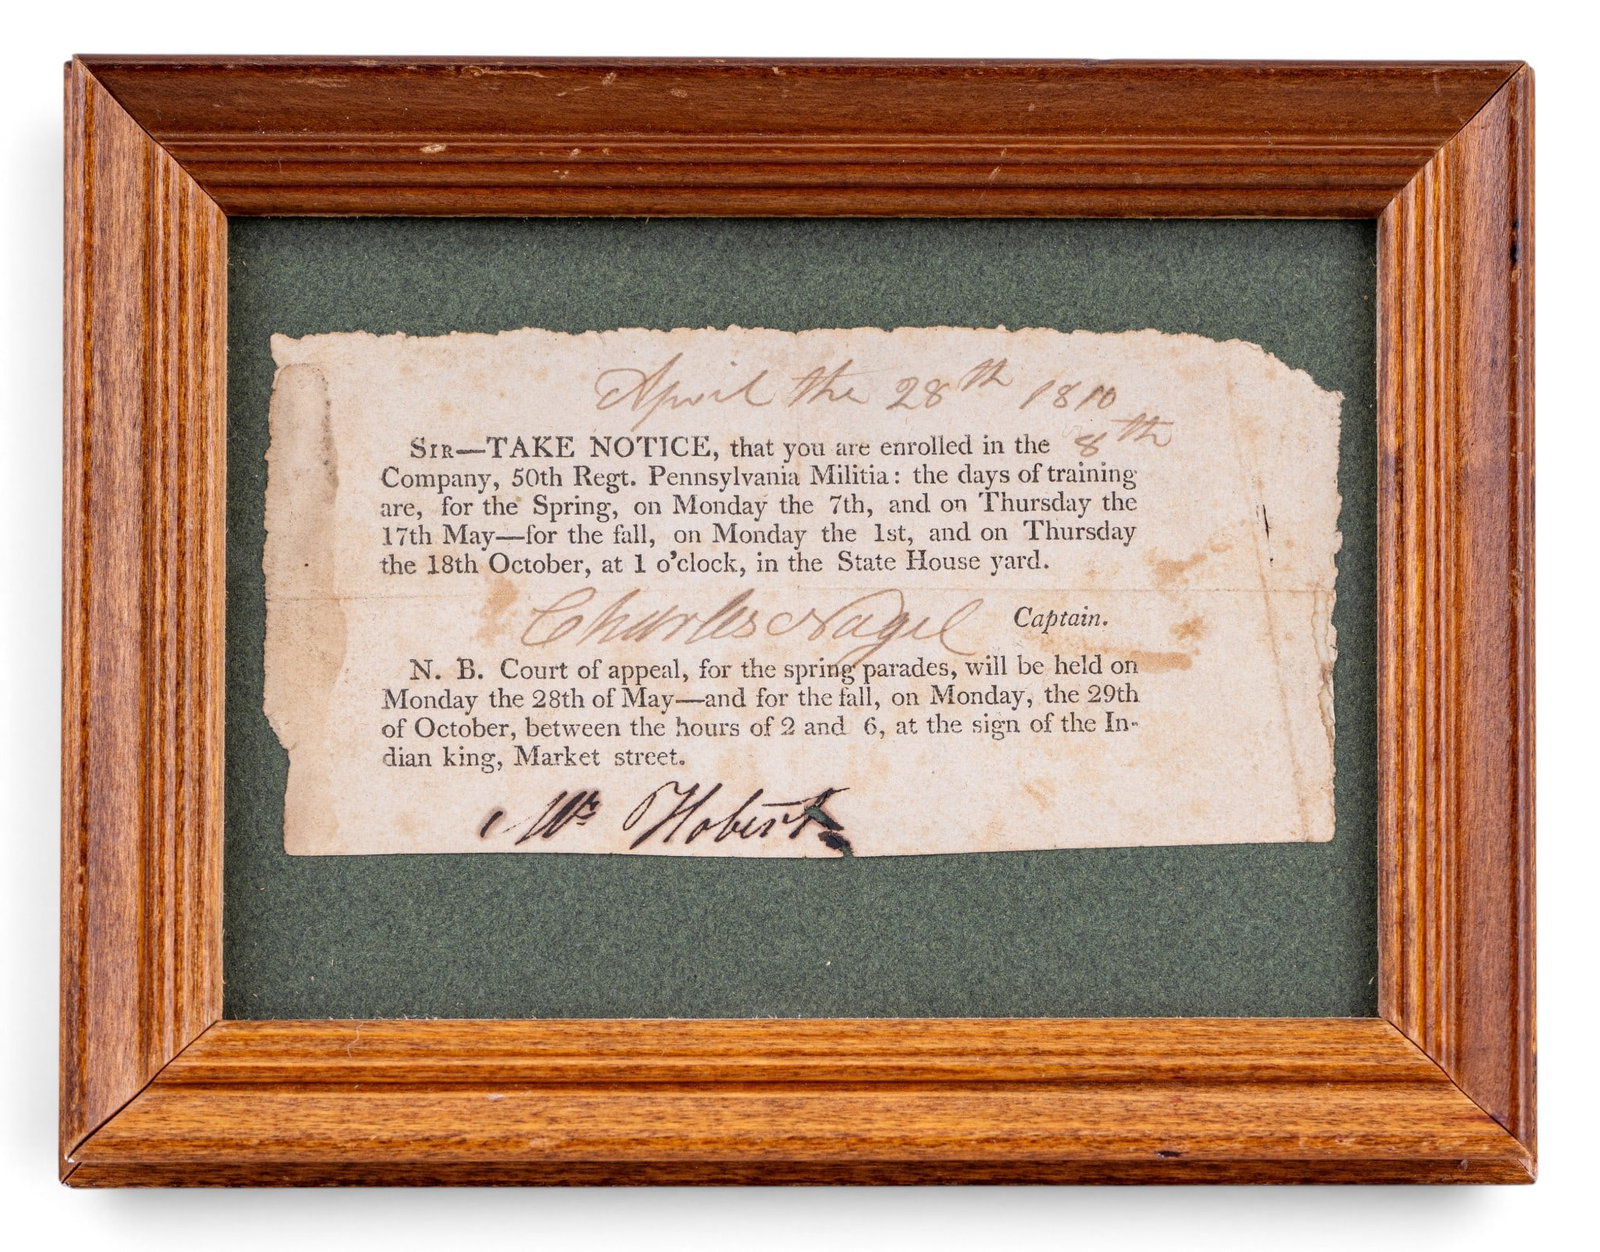 April the 28th 1810
SIR—TAKE NOTICE, that you are enrolled in the 8th
Company, 50th Regt. Pennsylvania Militia: the days of training
are, for the Spring, on Monday the 7th, and on Thursday the
17th May—for the fall, on Monday the 1st, and on Thursday
the 18th October, at 1 o'clock, in the State House yard.
Charles Nagel Captain.
N. B. Court of appeal, for the spring parades, will be held on
Monday the 28th of May—and for the fall, on Monday, the 29th
of October, between the hours of 2 and 6, at the sign of the In-
dian king, Market street.
Mr Hobert